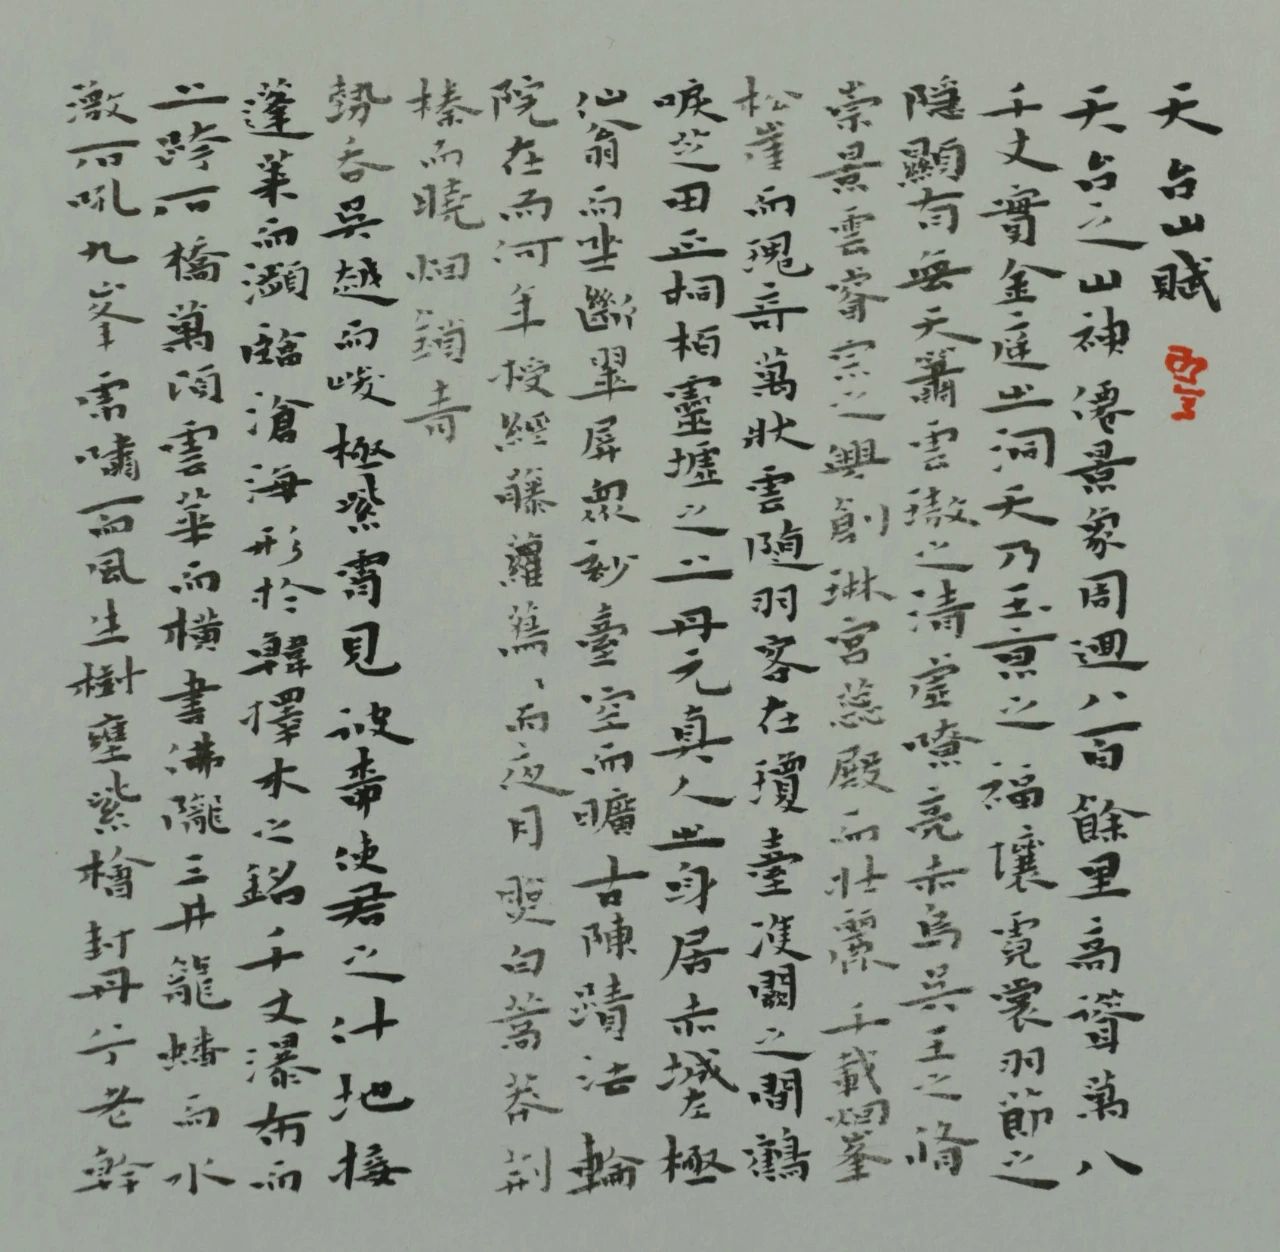 天台山賦
天台之山神僊景象周迴八百餘里高聳萬八
千丈實金庭之洞天乃玉京之福壤霓裳羽節之
隱顯有無天籟雲璈之清虛嘹亮赤烏吳王之脩
崇景雲睿宗之興創琳宮蕊殿而壯麗千載烟峯
松崖而瑰奇萬狀雲隨羽客在瓊臺雙闕之間鶴
唳芝田正桐柏靈墟之上丹元真人之身居赤城左極
仙翁而坐斷翠屏衆妙臺空而曠古陳蹟法輪
院在而河年授經藤蘿蔦、而夜月雙白蒿莽荊
榛而曉烟鎖青
勢吞吳越而峻極紫霄見彼嗇使君之汁地接
蓬萊而瀕臨滄海形於韓擇木之銘千丈瀑布而
上跨石橋萬頃雲華而橫書佛隴三井龍蟠而水
激石吼九峯雷嘯而風生樹壅紫檜封丹兮老幹